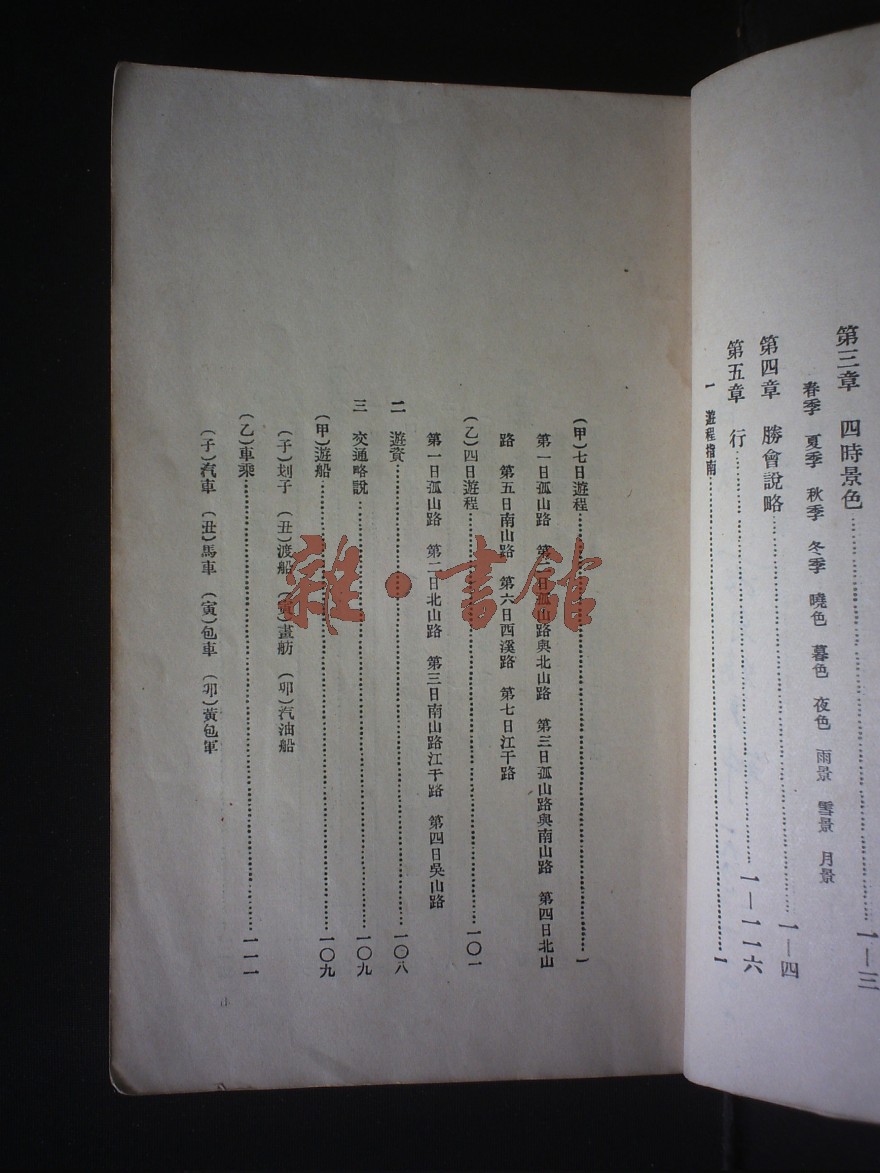 第三章　四時景色……一—三
春季　夏季　秋季　冬季　曉色　暮色　夜色　雨景　雪景　月景
第四章　勝會說略……一—四
第五章　行……一—一一六
一　遊程指南……一
(甲)七日遊程……一
第一日孤山路　第二日孤山路與北山路　第三日孤山路與南山路　第四日北山
路　第五日南山路　第六日西溪路　第七日江干路
(乙)四日遊程……一〇一
第一日孤山路　第二日北山路　第三日南山路江干路　第四日吳山路
二　遊資……一〇八
三　交通略說……一〇九
(甲)遊船……一〇九
(子)划子　(丑)渡船　(寅)畫舫　(卯)汽油船
(乙)車乘……一一一
(子)汽車　(丑)馬車　(寅)包車　(卯)黃包車
雜·書館